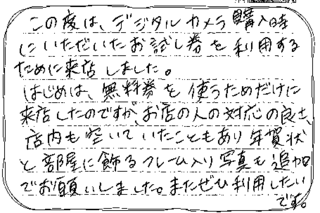 この度は、デジタルカメラ購入時
にいただいたお試し券を利用する
ために来店しました。
はじめは、無料券を使うためだけに
来店したのですが、お店の人の対応の良さ、
店内も空いていたこともあり年賀状
と部屋に飾るフレーム入り写真も追加
でお願いしました。またぜひ利用したい
です。